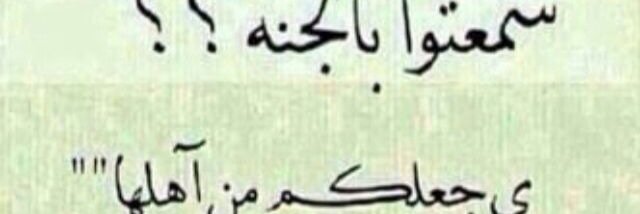 سمعتوا بالجنه ؟ ؟
ي جعلكم من آهلها " "